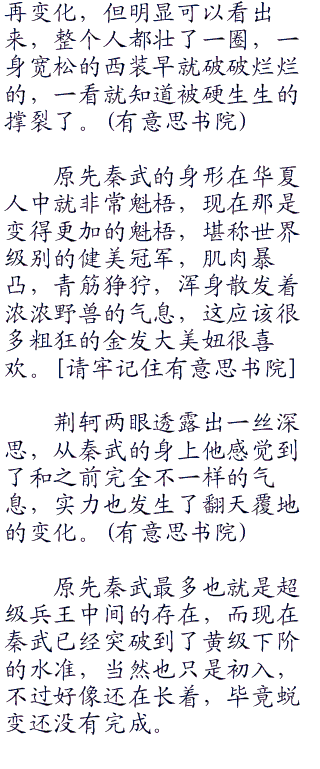 再变化，但明显可以看出
来，整个人都壮了一圈，一
身宽松的西装早就破破烂烂
的，一看就知道被硬生生的
撑裂了。(有意思书院)
原先秦武的身形在华夏
人中就非常魁梧，现在那是
变得更加的魁梧，堪称世界
级别的健美冠军，肌肉暴
凸，青筋狰狞，浑身散发着
浓浓野兽的气息，这应该很
多粗狂的金发大美妞很喜
欢。[请牢记住有意思书院]
荆轲两眼透露出一丝深
思，从秦武的身上他感觉到
了和之前完全不一样的气
息，实力也发生了翻天覆地
的变化。(有意思书院)
原先秦武最多也就是超
级兵王中间的存在，而现在
秦武已经突破到了黄级下阶
的水准，当然也只是初入，
不过好像还在长着，毕竟蜕
变还没有完成。